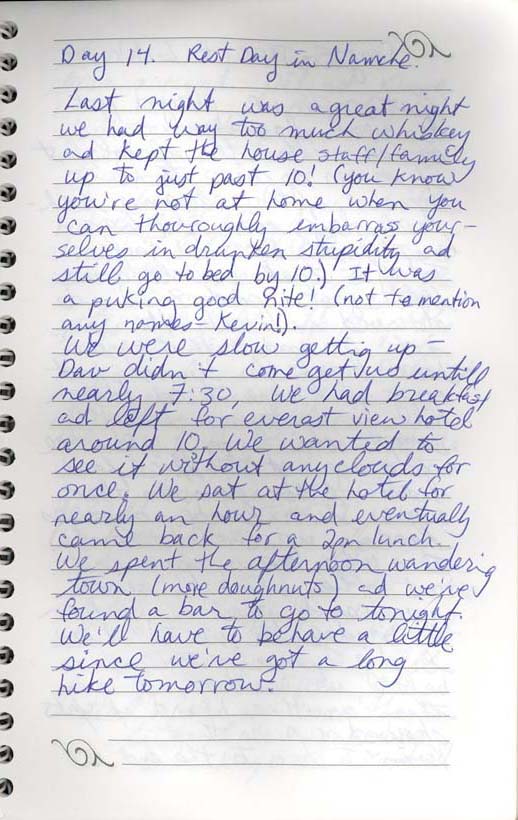 Day 14. Rest Day in Namche.
Last night was a great night
we had way too much whiskey
ad kept the house staff/family
up to just past 10! (you know
you're not at home when you
can thouroughly embarras your-
selves in drunken stupidity ad
still go to bed by 10.) It was
a puking good nite! (not to mention
any names - Kevin!).
We were slow getting up -
Dav didn't come get us untill
nearly 7:30, We had breakfast
ad left for everast view hotel
around 10. We wanted to
see it without any clouds for
once. We sat at the hotel for
nearly an hour and eventually
came back for a 2pm lunch.
We spent the afternoon wandering
town (more doughnuts) ad we've
found a bar to go to tonight.
We'll have to behave a little
since we've got a long
hike tomorrow.